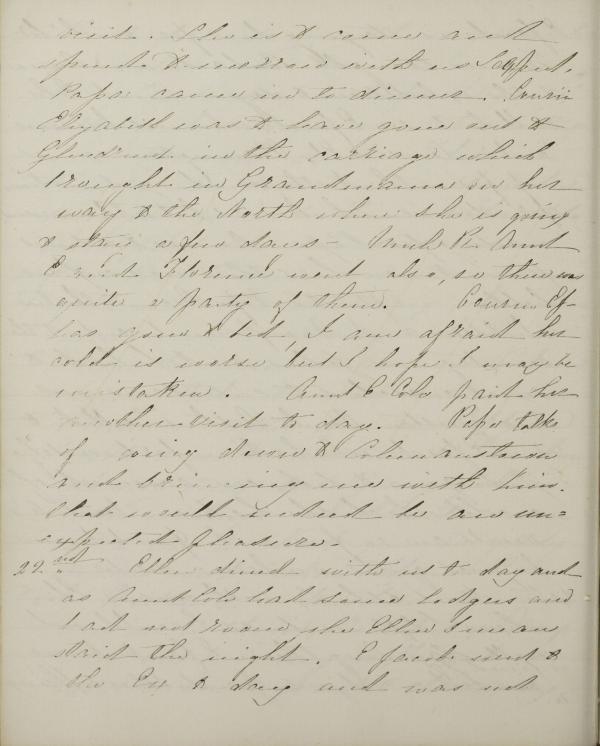 visit. She is to come and
spend to morrow with us
Papa came in to dinner. Cousin
Elizabeth was to have gone out to
in the carriage which
brought in Grandmama on her
way to the North where she is going
to stay a few days - Uncle R. Aunt
E and Florence went also, so there was
quite a party of them. Cousin E
has gone to bed, I am afraid her
cold is worse but I hope I may be
mistaken. Aunt C Cole paid her
another visit to day. Papa talks
of going down to
and bringing me with him.
that would indeed be an un=
expected pleasure.
22nd Ellen dined with us to day and
as Aunt Cole had some lodgers and
had not room she Ellen I mean
staid the night. E Jacob went to
the to day and was not